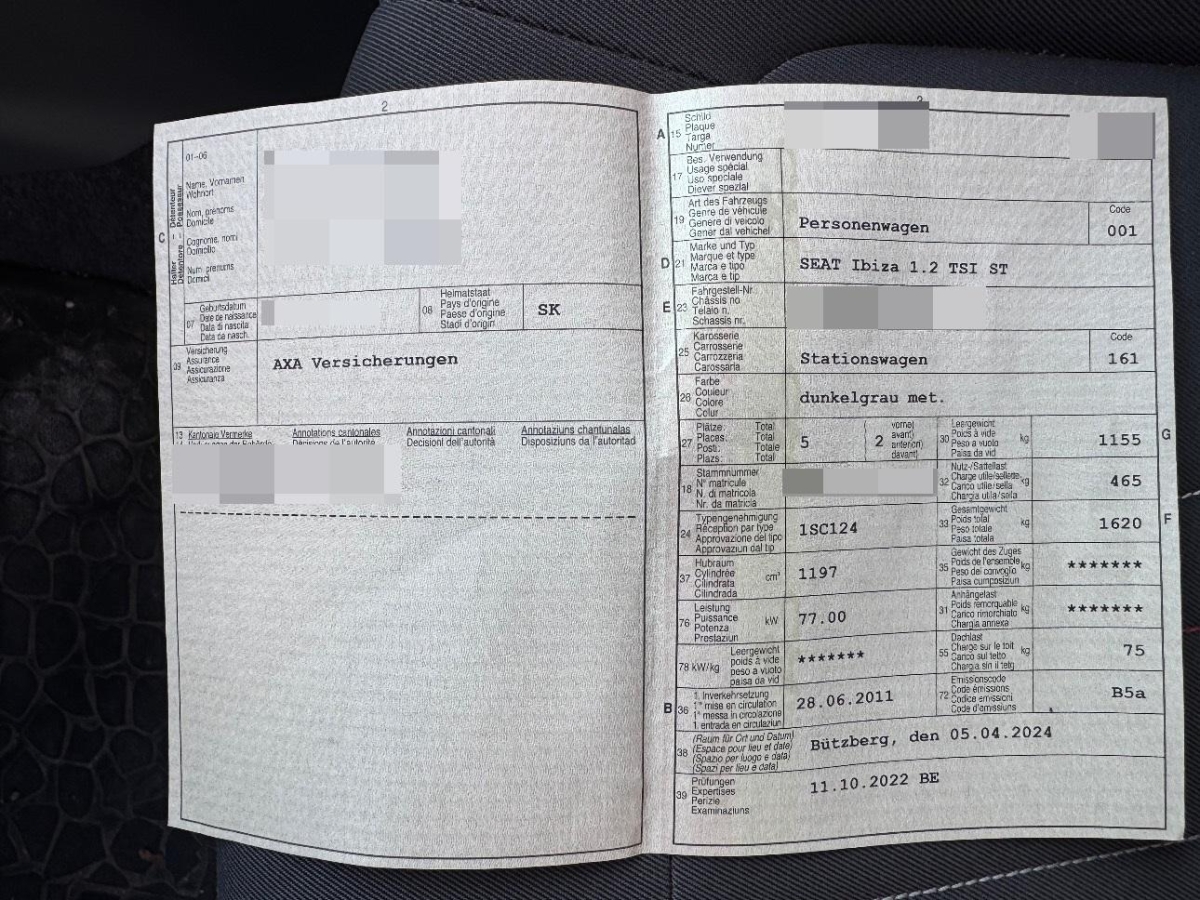 2
01–06
C
Halter – Détenteur
Detentore – Possessur
Name, Vornamen
Wohnort
Nom, prénoms
Domicile
Cognome, nomi
Domicilio
Num, prenoms
Domicil
07
Geburtsdatum
Date de naissance
Data di nascita
Data da nasch.
08
Heimatstaat
Pays d'origine
Paese d'origine
Stadi d'origin
SK
09
Versicherung
Assurance
Assicurazione
Assicuranza
AXA Versicherungen
13
Kantonale Vermerke
Annotations cantonales
Décisions de l'autorité
Annotazioni cantonali
Decisioni dell'autorità
Annotaziuns chantunalas
Disposiziuns da l'autoritad
A
15
Schild
Plaque
Targa
Numer
17
Bes. Verwendung
Usage spécial
Uso speciale
Diever spezial
19
Art des Fahrzeugs
Genre de véhicule
Genere di veicolo
Gener dal vehichel
Personenwagen
Code
001
D
21
Marke und Typ
Marque et type
Marca e tipo
Marca e tip
SEAT Ibiza 1.2 TSI ST
E
23
Fahrgestell-Nr.
Châssis no
Telaio n.
Schassis nr.
25
Karosserie
Carrosserie
Carrozzeria
Carossaria
Stationswagen
Code
161
26
Farbe
Couleur
Colore
Colur
dunkelgrau met.
27
Plätze: Total
Places: Total
Posti: Totale
Plazs: Total
5
2
vorne)
avant)
anteriori)
davant)
30
Leergewicht
Poids à vide
Peso a vuoto
Paisa da vid
kg
1155
G
18
Stammnummer
N° matricule
N. di matricola
Nr. da matricla
32
Nutz-/Sattellast
Charge utile/sellette
Carico utile/sella
Chargia utila/sella
kg
465
24
Typengenehmigung
Réception par type
Approvazione del tipo
Approvaziun dal tip
1SC124
33
Gesamtgewicht
Poids total
Peso totale
Paisa totala
kg
1620
F
37
Hubraum
Cylindrée
Cilindrata
Cilindrada
cm³
1197
35
Gewicht des Zuges
Poids de l'ensemble
Peso del convoglio
Paisa cumposiziun
kg
*******
76
Leistung
Puissance
Potenza
Prestaziun
kW
77.00
31
Anhängelast
Poids remorquable
Carico rimorchiato
Chargia annexa
kg
*******
78 kW/kg
Leergewicht
poids à vide
peso a vuoto
paisa da vid
*******
55
Dachlast
Charge sur le toit
Carico sul tetto
Chargia sin il tetg
kg
75
B
36
1. Inverkehrsetzung
1re mise en circulation
1a messa in circolazione
1. entrada en circulaziun
28.06.2011
72
Emissionscode
Code émissions
Codice emissioni
Code d'emissiuns
B5a
38
(Raum für Ort und Datum)
(Espace pour lieu et date)
(Spazio per luogo e data)
(Spazi per lieu e data)
Bützberg, den 05.04.2024
39
Prüfungen
Expertises
Perizie
Examinaziuns
11.10.2022 BE